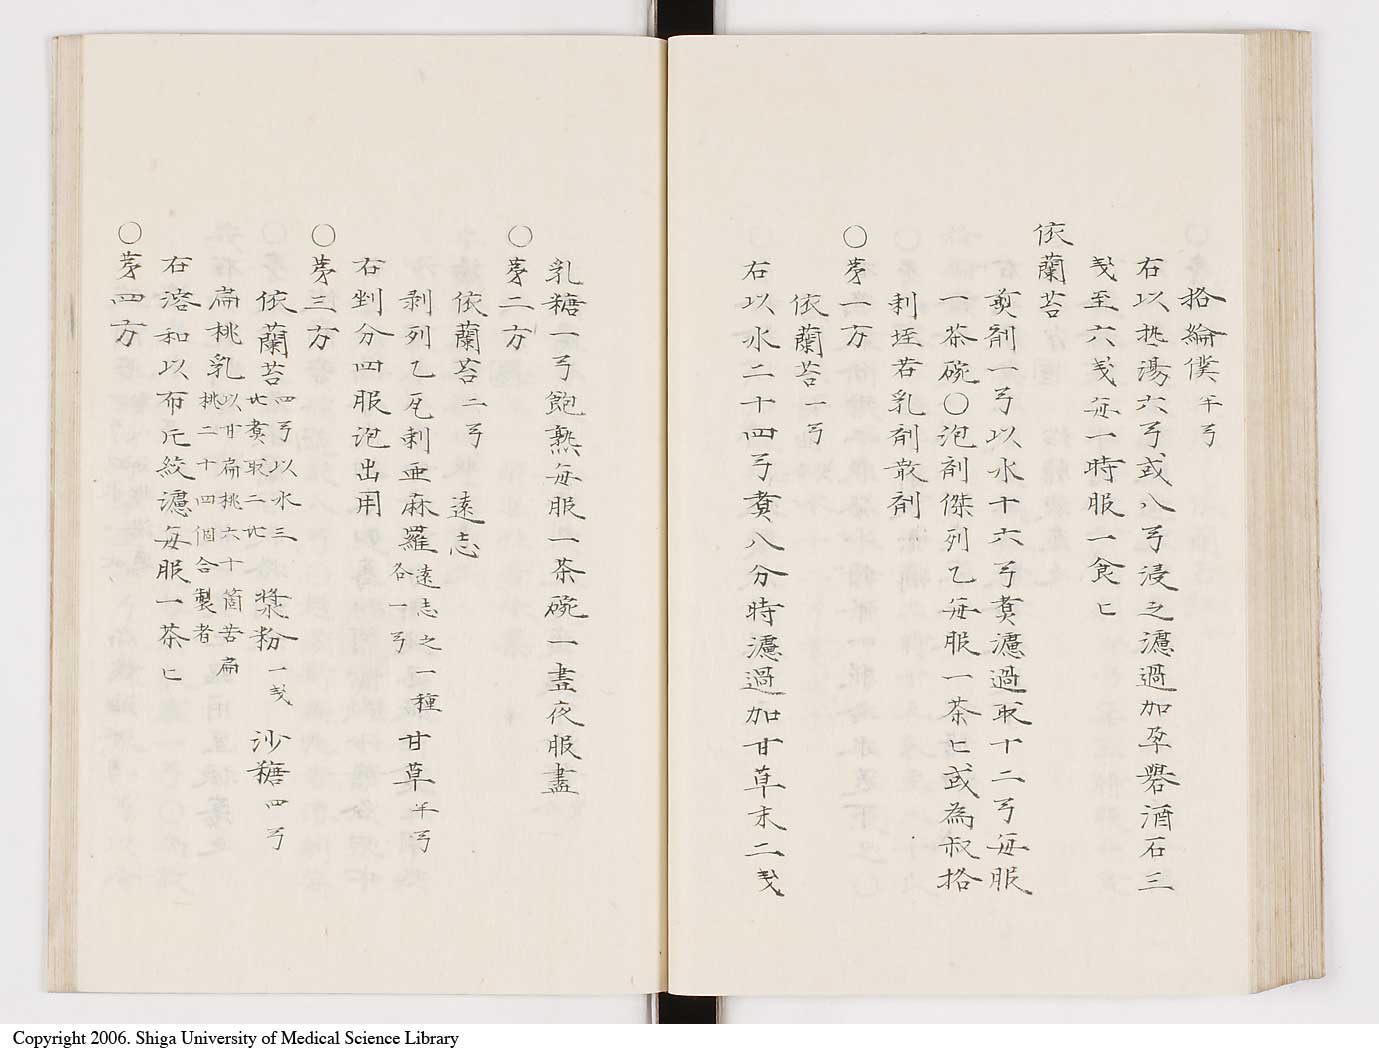 拾綸僕半弓
右以热湯六弓或八弓浸之濾過加孕礬酒石三
戔至六戔每一時服一食匕
依蘭苔
煎剤一弓以水十六弓煑濾過取十二弓每服
一茶碗〇泡剤傑列乙每服一茶匕或為叔拾
剌垤若乳剤散剤
〇苐一方
依蘭苔一弓
右以水二十四弓煑八分時濾過加甘草末二戔
乳糖一弓飽熟每服一茶碗一晝夜服盡
〇苐二方
依蘭苔二弓 遠志
剥列乙瓦剌亜麻羅遠志之一種各一弓 甘草半弓
右剉分四服泡出用
〇苐三方
依蘭苔四弓以水三㪷煑取二㪷 漿粉一戔 沙糖四弓
扁桃乳以甘扁桃六十箇苦扁桃二十四個合製者
右溶和以布片絞濾每服一茶匕
〇苐四方
Copyright 2006. Shiga University of Medical Science Library